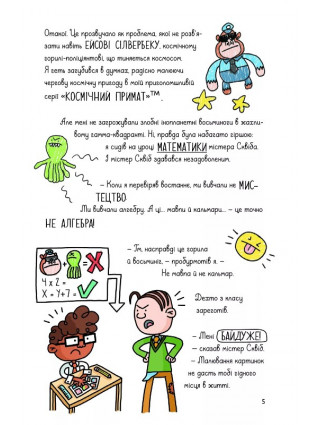 Отакої. Це прозвучало як проблема, якої не розв'я-
зати навіть ЕЙСОВІ СІЛВЕРБЕКУ, космічному
горилі-поліціянтові, що тиняється космосом.
Я геть загубився в думках, радісно малюючи
чергову космічну пригоду в моїй приголомшливій
серії «КОСМІЧНИЙ ПРИМАТ»™.
Але мені не загрожували злобні інопланетні восьминоги в жахли-
вому гамма-квадранті. Ні, правда була набагато гіршою:
я сидів на уроці МАТЕМАТИКИ містера Сквіба.
І містер Сквіб здавався незадоволеним.
– Коли я перевіряв востаннє, ми вивчали не МИС-
ТЕЦТВО.
Ми вивчали алгебру. А ці... мавпи й кальмари... – це точно
НЕ АЛГЕБРА!
4 x 2 =
X = Y + 7
– Гм, насправді це горила
й восьминіг, – пробурмотів я. –
Не мавпа й не кальмар.
Дехто з класу
зареготів.
– Мені БАЙДУЖЕ!
– сказав містер Сквіб.
– Малювання картинок
не дасть тобі гідного
місця в житті.
5